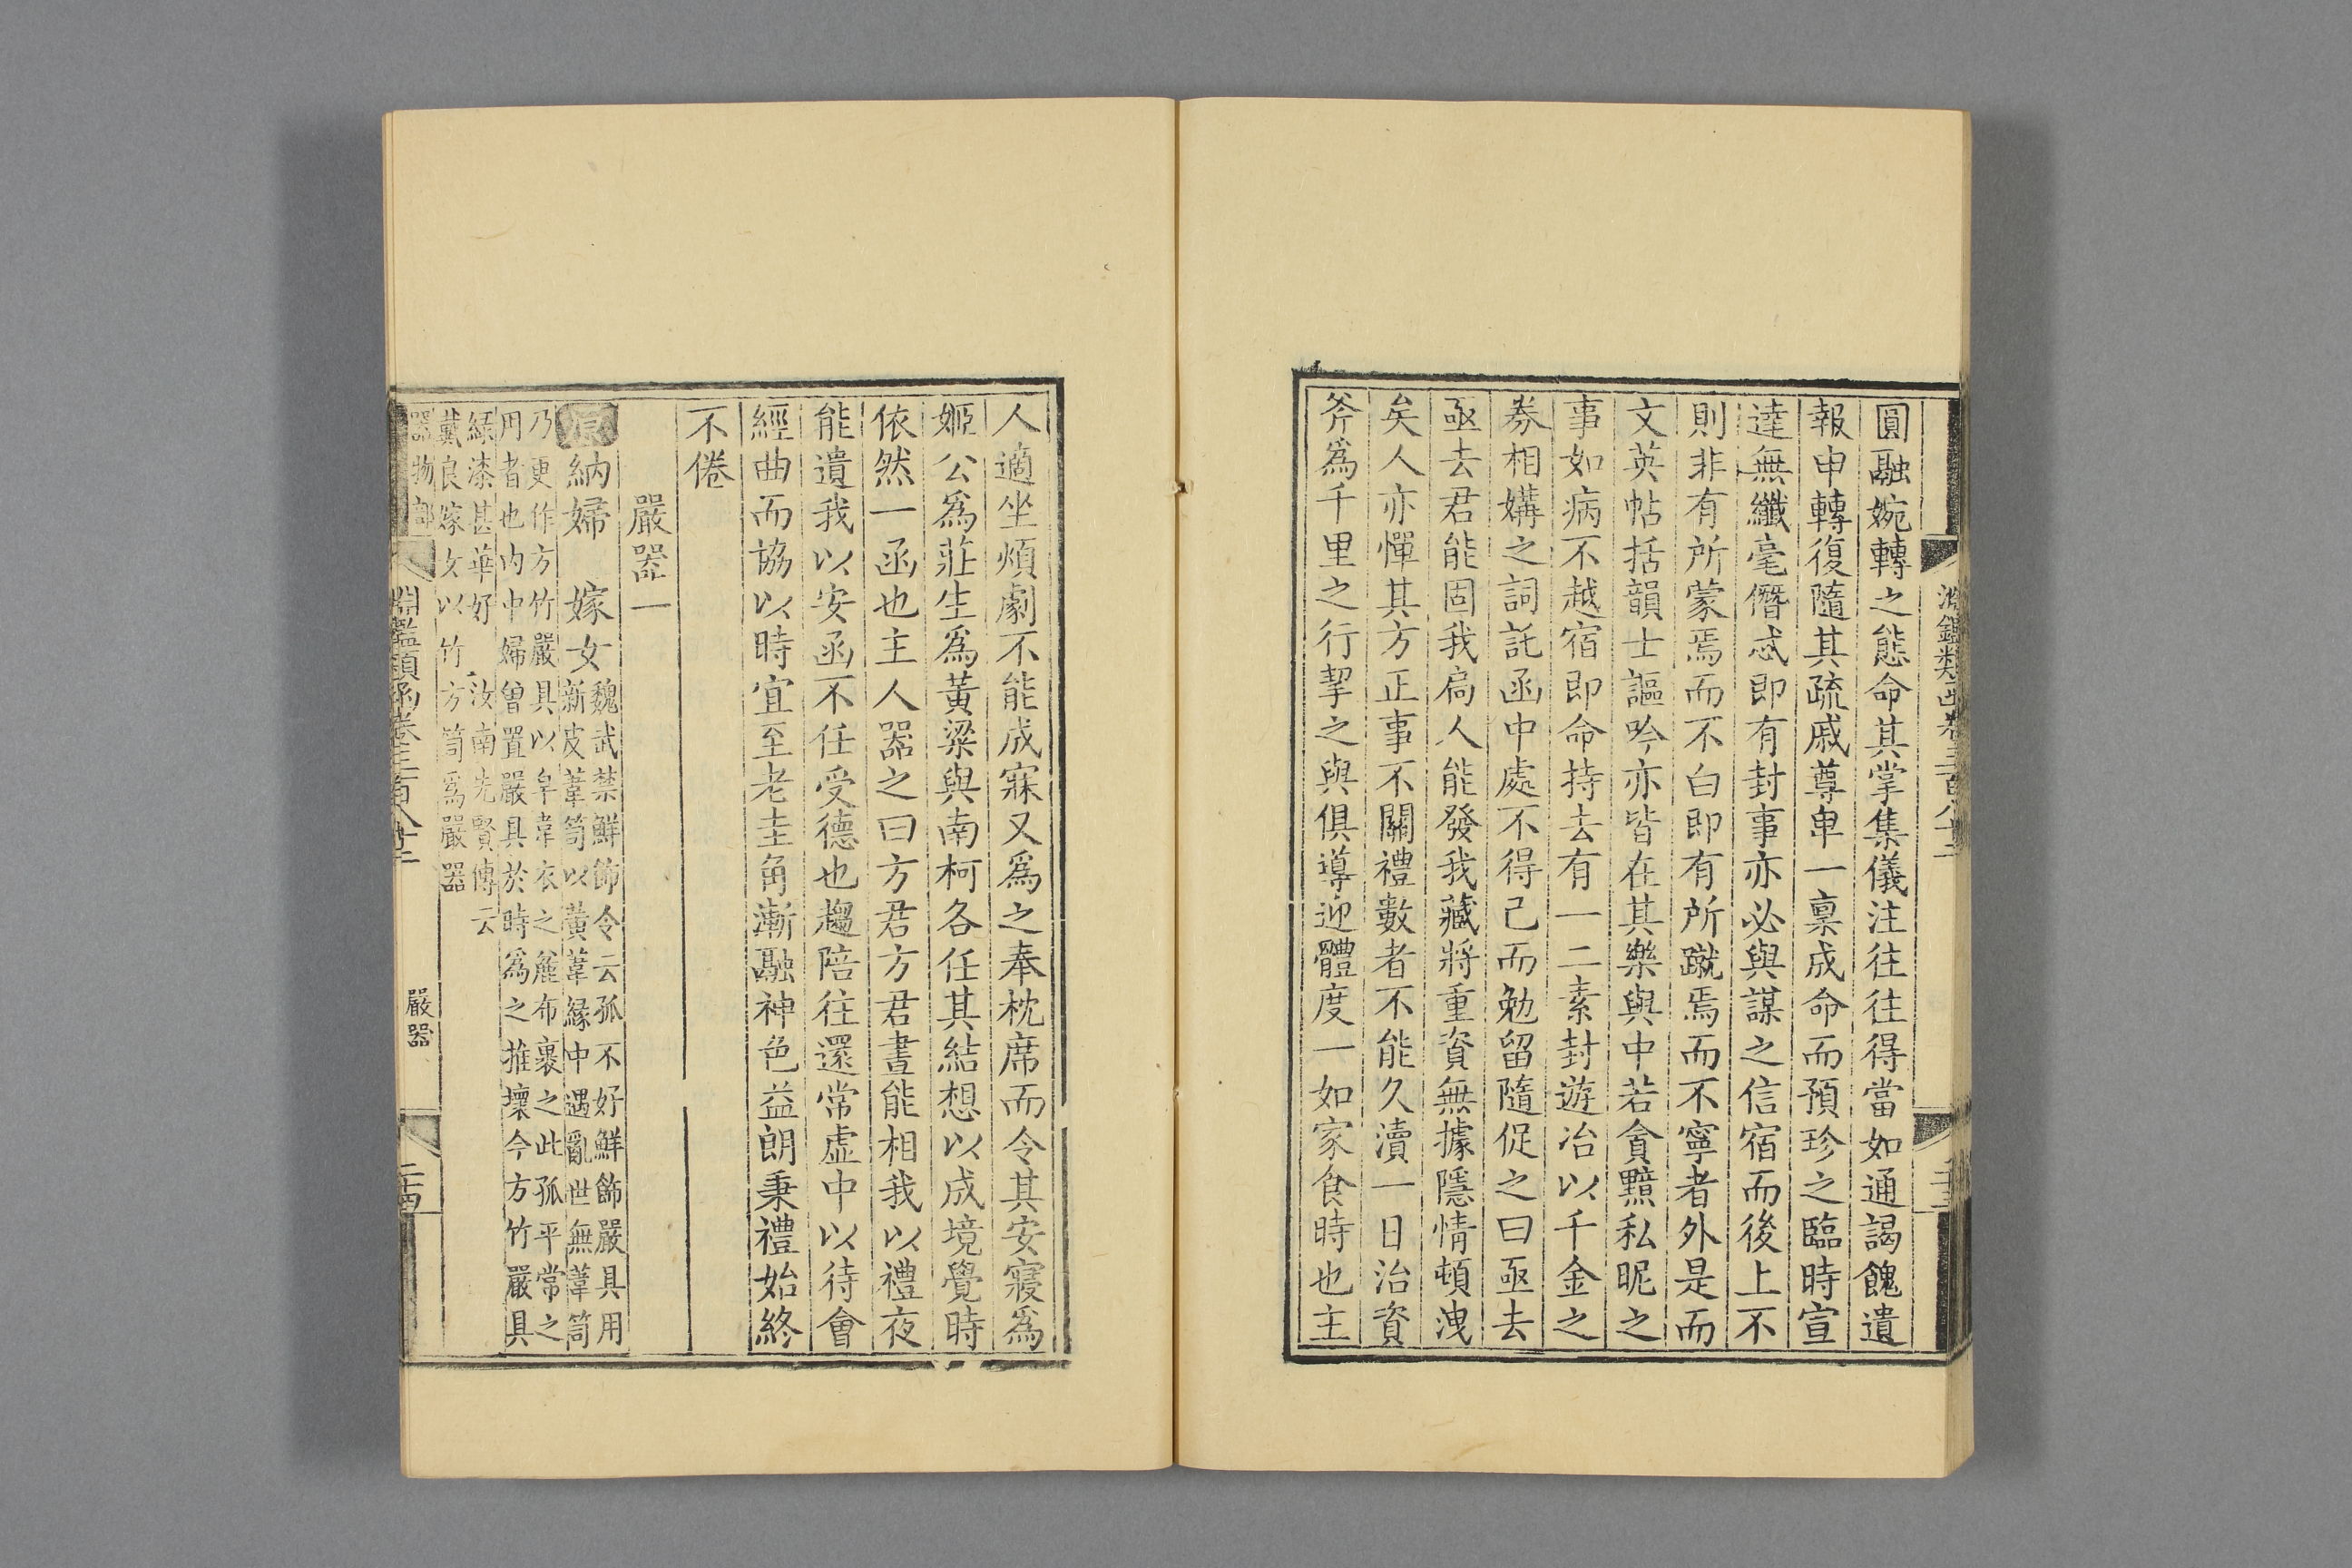 淵鑑類函卷三百八十二
圓融婉轉之態命其掌集儀注往往得當如通謁餽遺
報申轉復隨其疏戚尊卑一稟成命而預珍之臨時宣
達無纖毫僭忒即有封事亦必與謀之信宿而後上不
則非有所蒙焉而不白即有所蹴焉而不寧者外是而
文英帖括韻士謳吟亦皆在其樂與中若貪黷私昵之
事如病不越宿即命持去有一二素封遊冶以千金之
券相媾之詞託函中處不得已而勉留隨促之曰亟去
亟去君能固我扃人能發我藏將重資無據隱情頓洩
矣人亦憚其方正事不關禮數者不能久瀆一日治資
斧爲千里之行挈之與俱導迎體度一如家食時也主
人適坐煩劇不能成寐又爲之奉枕席而令其安寢爲
姬公爲莊生爲黃粱與南柯各任其結想以成境覺時
依然一函也主人器之曰方君方君晝能相我以禮夜
能遺我以安函不任受德也趨陪往還常虛中以待會
經曲而協以時宜至老圭角漸融神色益朗秉禮始終
不倦
嚴器一
原納婦　嫁女魏武禁鮮飾令云孤不好鮮飾嚴具用
新皮葦笥以黃葦緣中遇亂世無葦笥
乃更作方竹嚴具以皁韋衣之麤布裹之此孤平常之
用者也內中婦曾置嚴具於時爲之推壞今方竹嚴具
緑漆甚華好　汝南先賢傳云
戴良嫁女以竹方笥爲嚴器
器物部
淵鑑類函卷三百八十二
嚴器
二十四